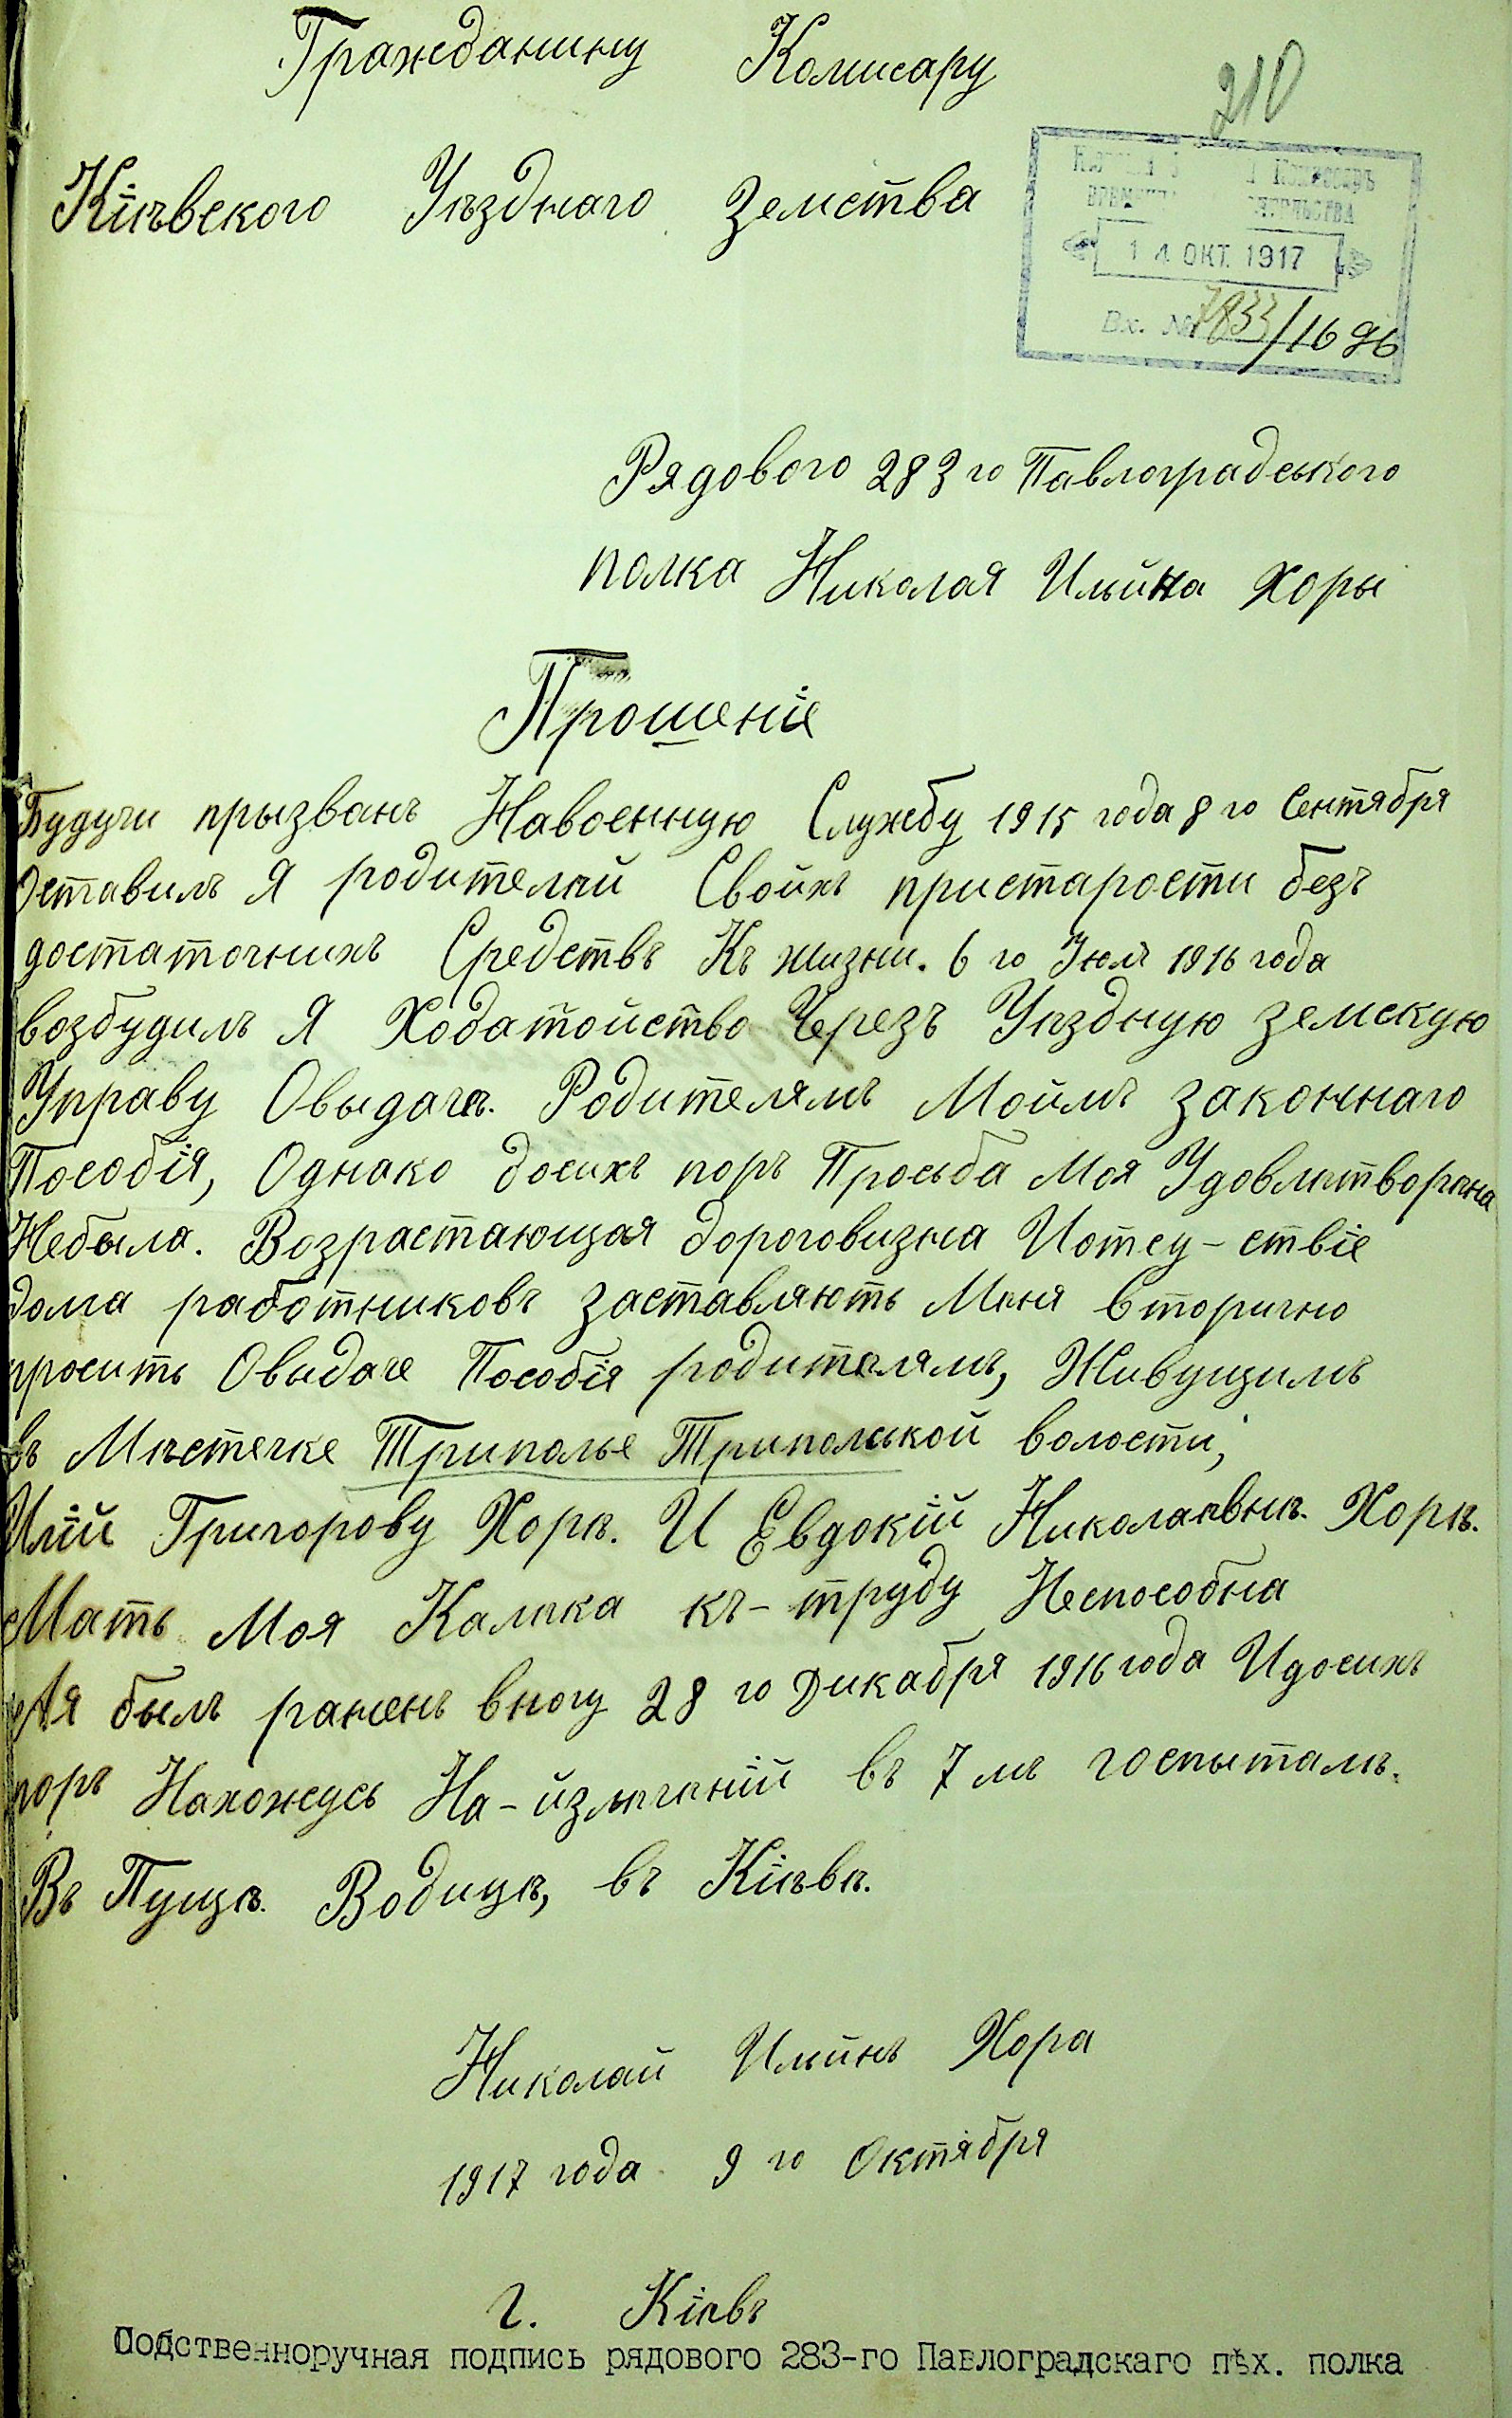 Гражданину Комисару
210
Кіѣвского Уѣзднаго Земства
14 ОКТ. 1917
Вх. № 7833/1696
Рядового 283 го Павлоградського
полка Николая Ильйна Хоры
Прошеніе
Будучи прызванъ Навоенную Службу 1915 года 8 го Сентября
Оставилъ Я родителѣй Свойхъ пристарости безъ
достаточнихъ Средствъ Къ жизни. 6 го Июля 1916 года
возбудилъ Я Ходатойство Черезъ Уѣздную земскую
Управу Овыдачѣ. Родителямъ Моймъ законнаго
Пособія, Однако досихъ поръ Просьба Моя Удовлѣтворѣна
Небыла. Возрастающая дороговизна Иотсу-ствіе
дома работниковъ заставляють Мѣня вторично
просить Овыдаче Пособія родителямъ, Живущимъ
въ Мѣстечке Триполье Трипольской волости,
Илій Григорову Хорѣ. И Евдокій Николаѣвнѣ. Хорѣ.
Мать Моя Калѣка къ-труду Неспособна
Ая былъ ранѣнъ вногу 28 го Дикабря 1916 года Идосихъ
поръ Нахожусь На-йзлѣчѣній въ 7 мъ госпыталѣ.
Въ Пущѣ. Водицѣ, въ Кіѣвѣ.
Николай Ильйнъ Хора
1917 года 9 го Октября
г. Кіѣвъ
Собственноручная подпись рядового 283-го Павлоградскаго пѣх. полка